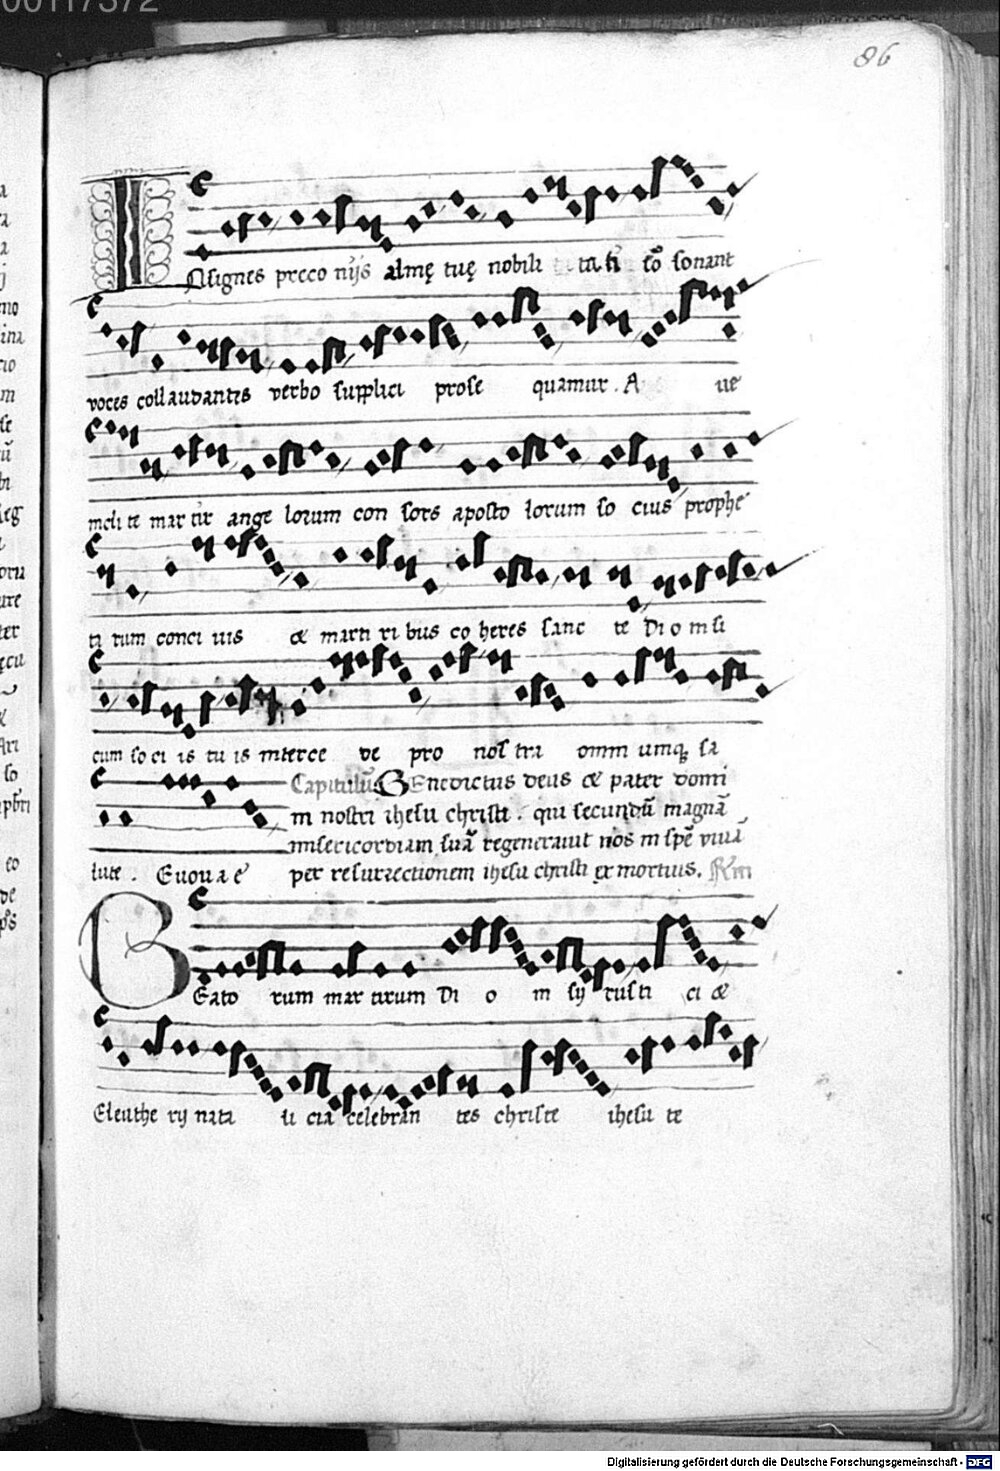 00117372
86
INsignes preco nijs almę tuę nobili ta ti cō sonant
voces collaudantes verbo supplici prose quamur . A ue
incli te mar tir ange lorum con sors aposto lorum so cius prophe
ta rum conci uis & marti ri bus co heres sanc te Dio ni si
cum so ci is tu is interce de pro nos tra omni umq; sa
Capitulū BEnedictus deus & pater domi
ni nostri ihesu christi . qui secundū magnā
misericordiam suā regenerauit nos in spē viuā
lute . Euouae per resurrectionem ihesu christi ex mortuis.
BEato rum mar tirum Di o ni sij rusti ci &
Eleuthe rij nata li cia celebran tes christe ihesu te
Digitalisierung gefördert durch die Deutsche Forschungsgemeinschaft - DFG